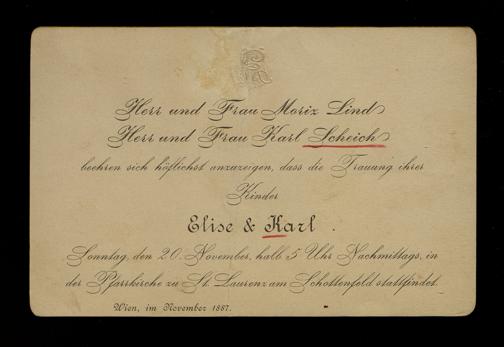 Herr und Frau Moriz Lind
Herr und Frau Karl Scheich
beehren sich höflichst anzuzeigen, dass die Trauung ihrer
Kinder
Elise & Karl .
Sonntag, den 20. November, halb 5 Uhr Nachmittags, in
der Pfarrkirche zu St. Laurenz am Schottenfeld stattfindet.
Wien, im November 1887.